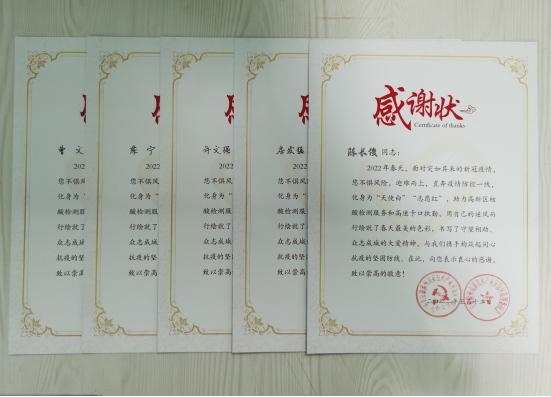 感谢状
Certificate of thanks
陈长俊 同志：
2022年春天，面对突如其来的新冠疫情，
您不惧风险，迎难而上，直奔疫情防控一线，
化身为“天使白”“志愿红”，助力高新区核
酸检测服务和高速卡口执勤，用自己的逆风而
行绘就了春天最美的色彩，书写了守望相助、
众志成城的大爱精神，与我们携手构筑起同心
抗疫的坚固防线。在此，向您表示衷心的感谢，
致以崇高的敬意！
曾 文
2022
您不惧风
化身为“
酸检测服
行绘就了
众志成城
抗疫的坚
致以崇高
宁
2022
您不惧风险
化身为“天
酸检测服
行绘就了
众志成城
抗疫的坚
致以崇高
许文强
2022
您不惧风险
化身为“天
酸检测服
行绘就了
众志成城
抗疫的坚
致以崇高
2022
您不惧风险
化身为“天
酸检测服
行绘就了
众志成城
抗疫的坚
致以崇高